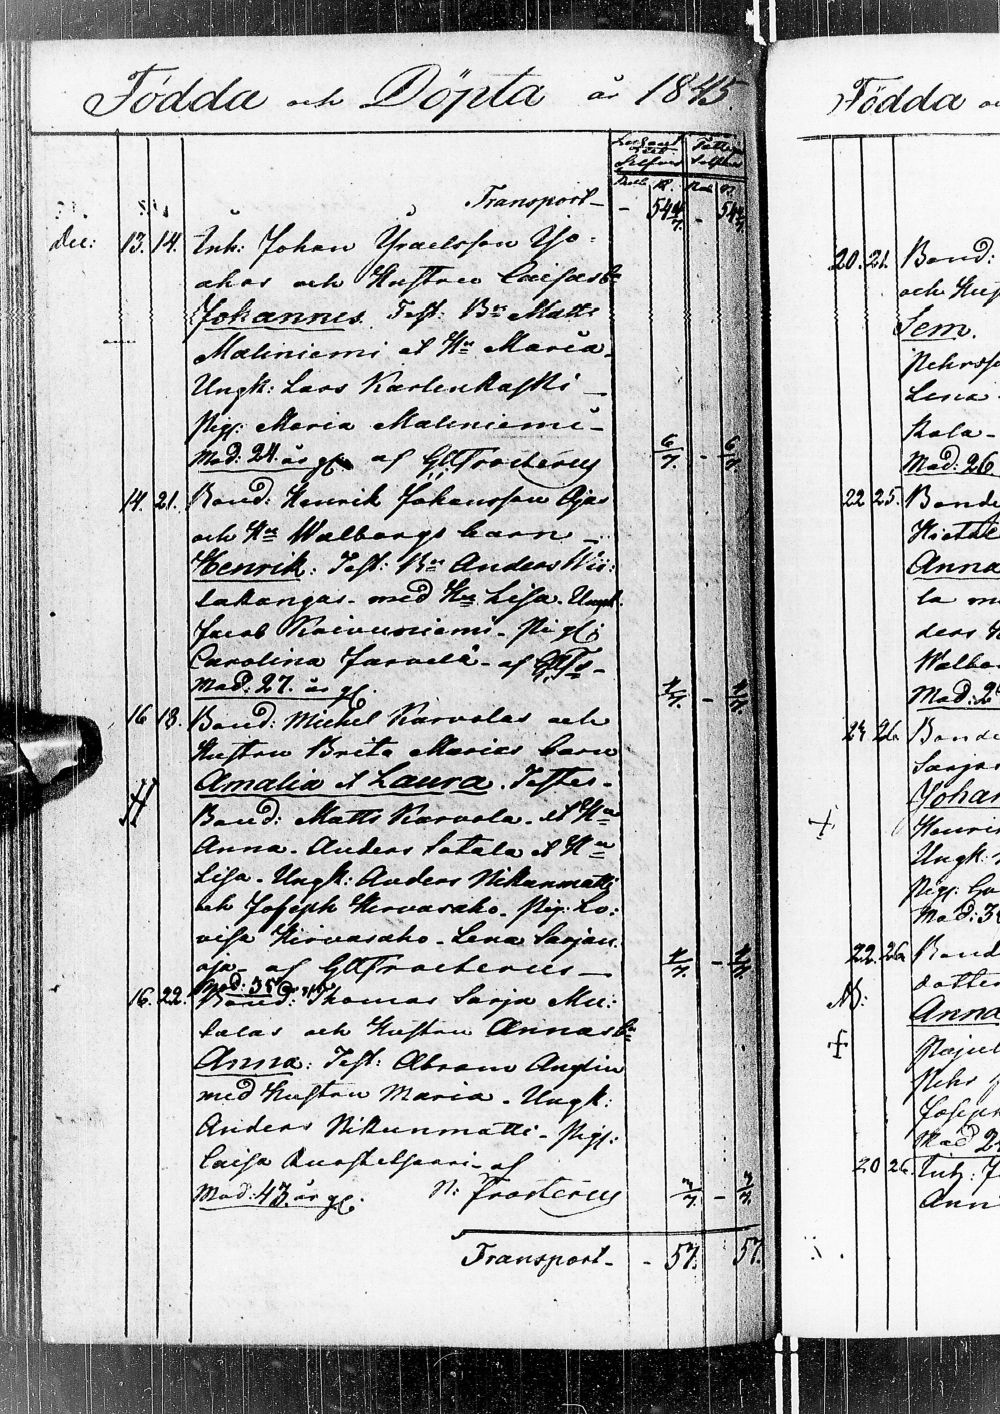 Födda och Döpta år 1845.
Transport - 54 4/7. - 54 4/7.
Dec: 13. 14. Inh: Johan Ysraelsson
och Hustru Caisas bn
Johannes. Test: Bn Matts
Maliniemi et Hu Maria
Ungk: Lars Karlenkaski
Pig: Maria Maliniemi
Mod: 24. år gl. af GATrosterus 6/7. - 6/7.
14. 21. Bond: Henrik Johansson Ojas
och Hus Walborgs barn
Henrik: Test: Bn Anders
med Hu Lisa. Ungk:
Jacob Koivuniemi. Pig:
Carolina Jarvelä - af
Mod: 27. år gl. 1/7. - 1/7.
16 18. Bond: Mickel Karvolas och
Hustru Brita Marias barn
Amalia et Laura. Testes.
Bond: Matts Karvola. et Hu
Anna. Anders Sotala et Hu
Lisa. Ungk: Anders Nikunmatti
och Joseph Hirvasaho. Pig: Lo:
visa Hirvasaho. Lena Sarjan
oja - af GATrosterus 1/7. - 1/7.
Mod: 35
16. 22. Bond: Thomas Sarja Mu:
talas och Hustru Annas bn
Anna: Test: Abram
med Hustru Maria. Ungk:
Anders Nikunmatti - Pig:
Caisa
Mod: 43 år gl. af N: Frosterus 3/7. - 3/7.
Transport - 57. 57.
Födda
20. 21. Bond:
och
Sem.
Lena
Kala-
Mod: 26
22 25. Bonde
Anna
la
ders
Walbo
Mod: 2
26. Bonde
Sarja
Johan
Henrik
Ungk:
Pig:
Mod: 3
22. 26. Bond
dotter
Anna
Joseph
Mod 2
20 26. Inh:
Ann